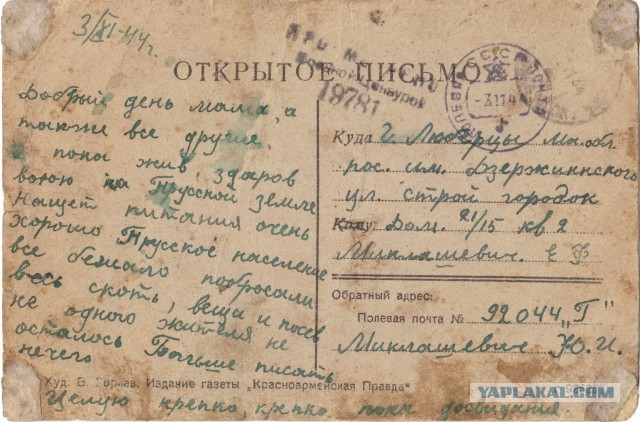 3/XI-44 г.
ПРОСМОТРЕНО
Военной Цензурой
19781
ОТКРЫТОЕ ПИСЬМО
ПОЛЕВАЯ ПОЧТА
СССР
-3.11.44
Добрый день мама, а
также все другие,
пока жив, здаров
воюю на Прусской земле
Нащет питания очень
хорошо Прусское население
все бежало побросали
весь скоть, веща и посев
не одного жителя не
осталось Больше писать
нечего
Целую крепко, крепко пока досвидания
Куда г. Люберцы Мо. обл.
пос. им. Дзержинского
ул. строй городок
Кому: Дом. 21/15 кв 2
Миклашевич. Е Ф
Обратный адрес:
Полевая почта № 92044 „Г"
Миклашевич Ю. И.
Худ. В. Горяев. Издание газеты „Красноармейская Правда"
YAPLAKAL.COM